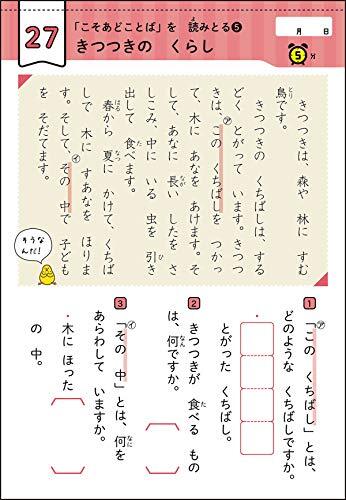 27
「こそあどことば」を 読みとる5
よ
きつつきの くらし
月 日
5分
きつつきは、森や 林に すむ
鳥です。
とり
きつつきの くちばしは、する
どく とがって います。きつつ
きは、㋐この くちばしを つかっ
て、木に あなを あけます。そ
して、あなに 長い したを さ
しこみ、中に いる 虫を 引き
なが ひ
出して 食べます。
た
春から 夏に かけて、くちば
はる なつ
しで 木に すあなを ほりま
す。そして、㋑その 中で 子ども
を そだてます。
そうなんだ!
1 ㋐「この くちばし」とは、
どのような くちばしですか。
とがった くちばし。
2 きつつきが 食べる もの
は、何ですか。
なん
3 ㋑「その 中」とは、何を
なに
あらわして いますか。
・木に ほった
の 中。